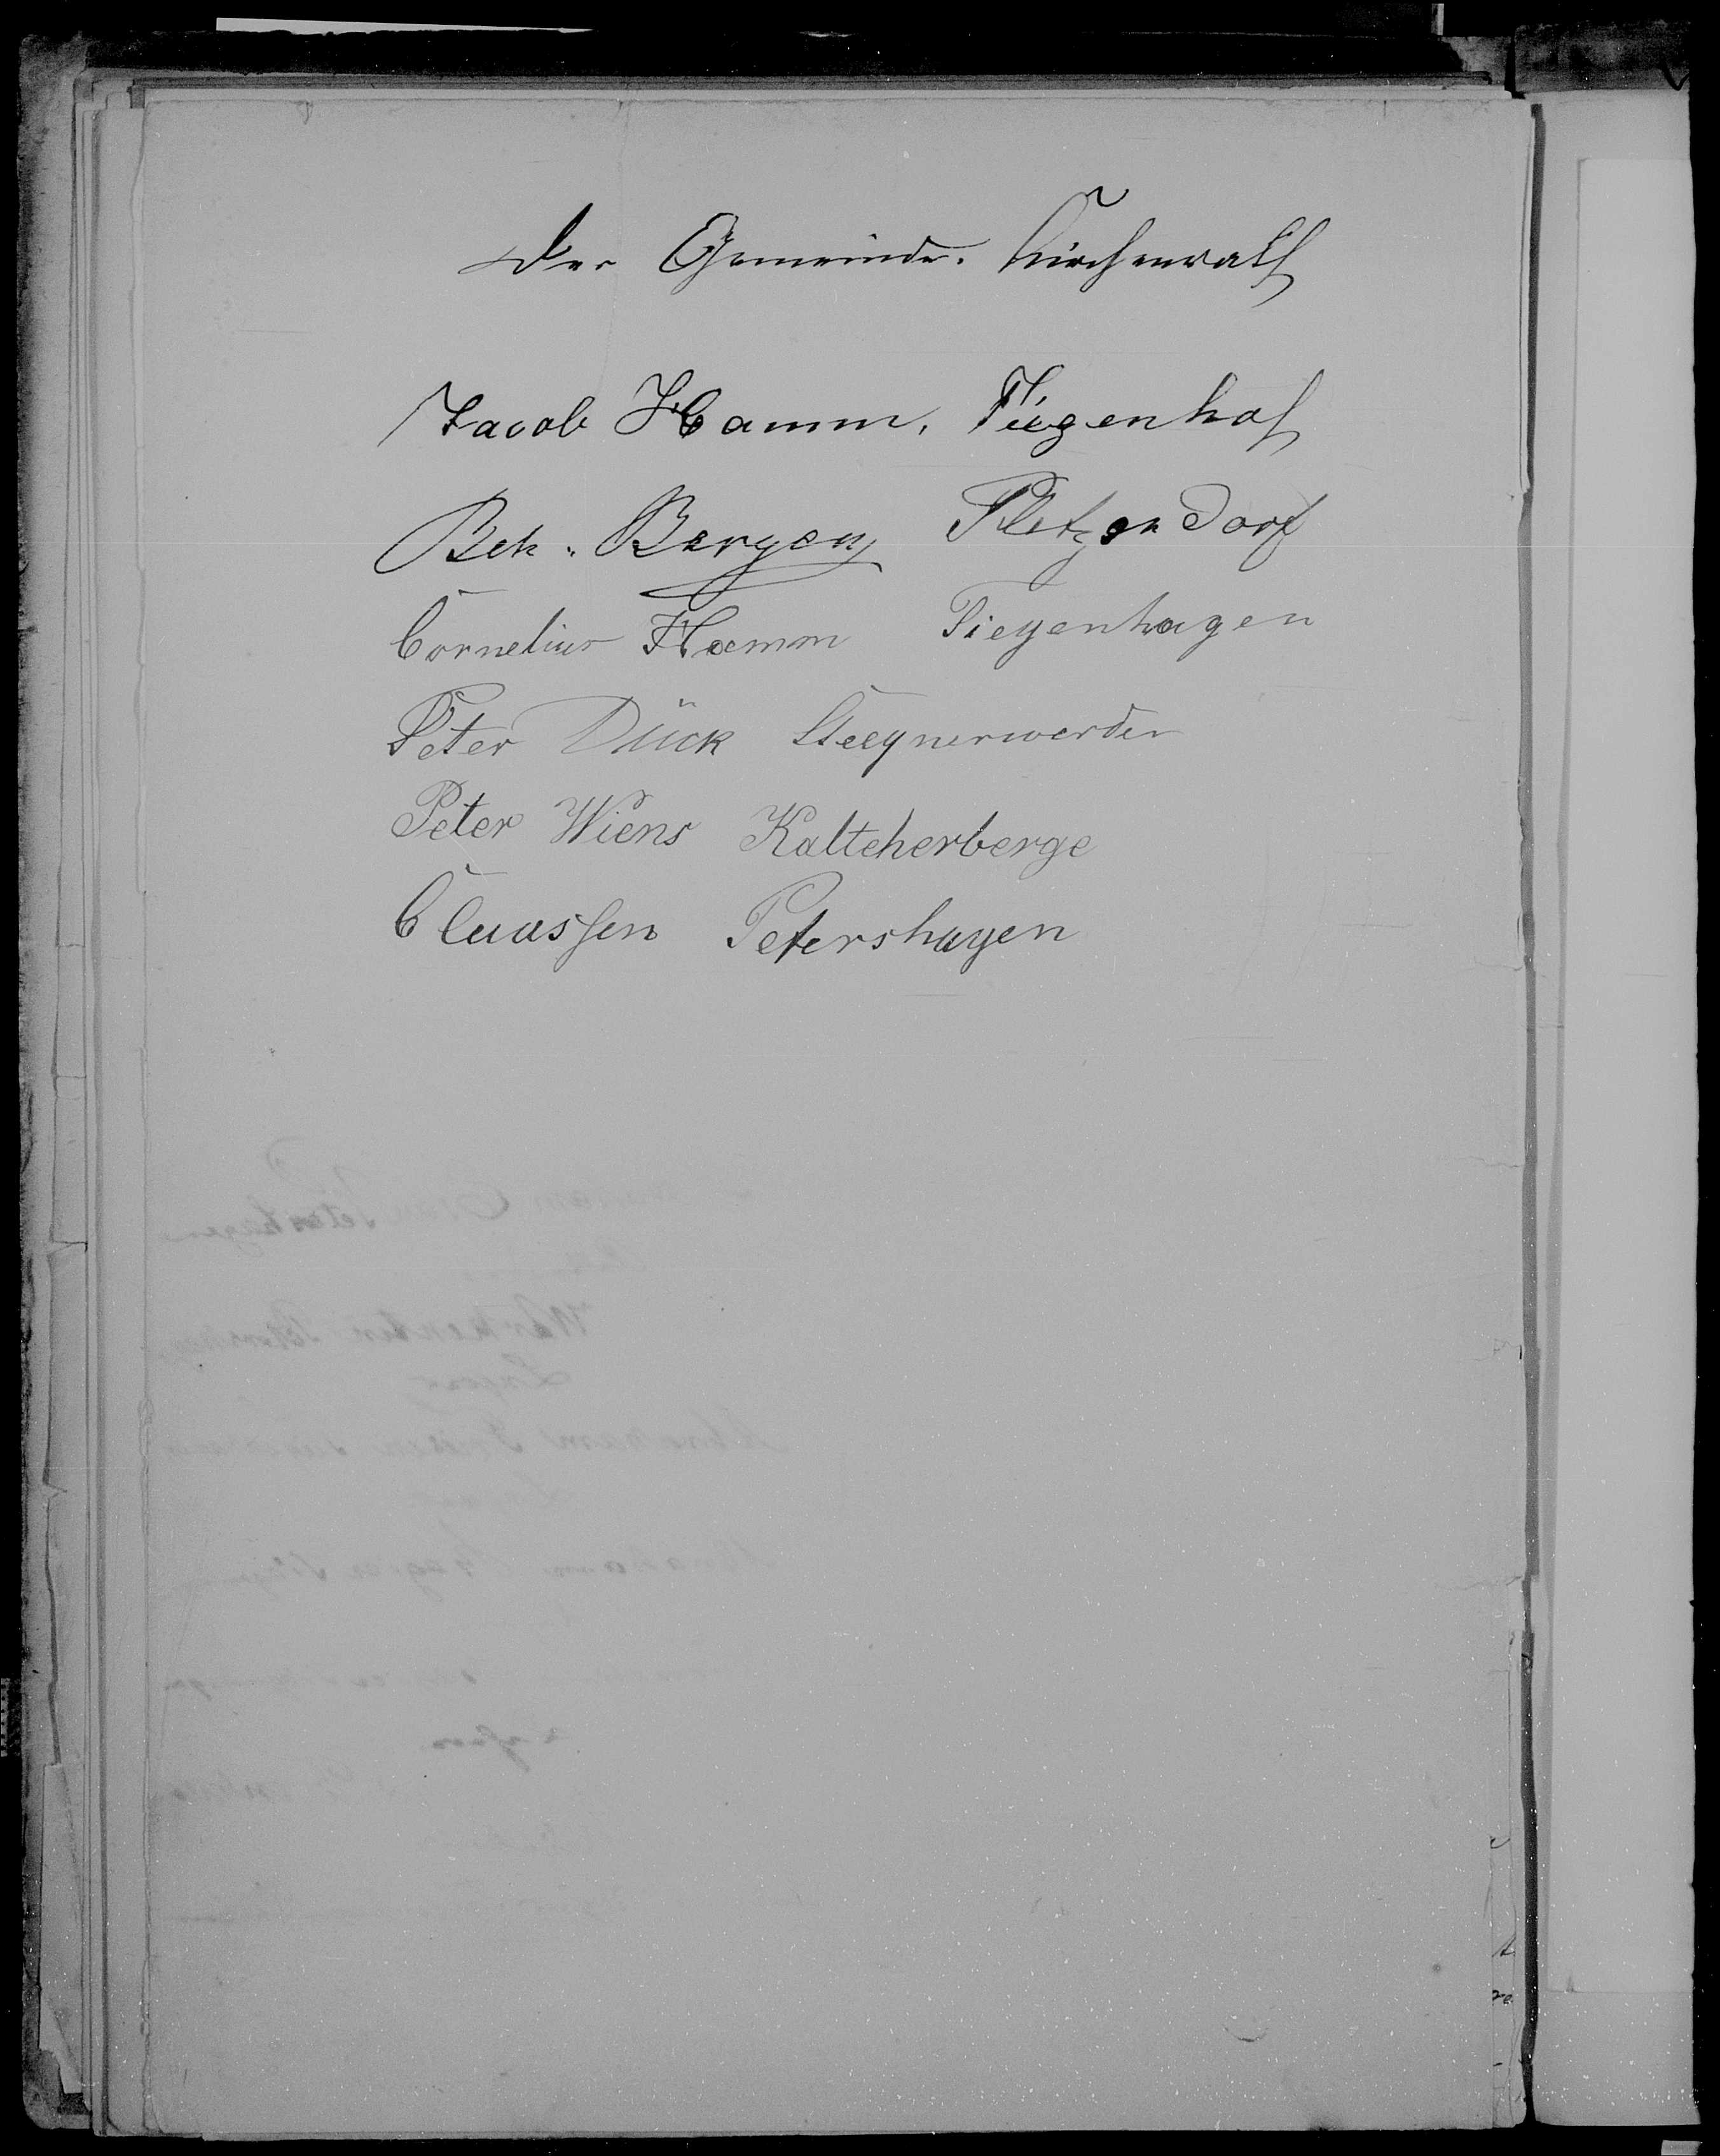 Der Gemeinde-Kirchenrath
Jacob Hamm, Tiegenhof
Beh. Bergen Pletzendorf
Cornelius Hamm Tiegenhagen
Peter Dück Steegnerwerder
Peter Wiens Kalteherberge
Claassen Petershagen